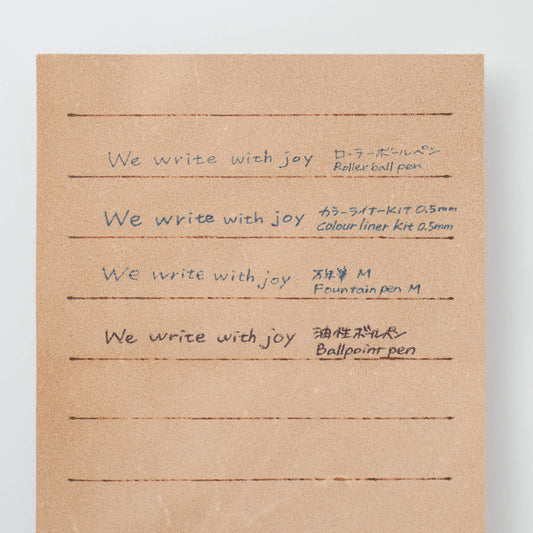 We write with joy ローラーボールペン
Roller ball pen
We write with joy カラーライナーKIT 0.5mm
Colour liner Kit 0.5mm
We write with joy 万年筆 M
Fountain pen M
We write with joy 油性ボールペン
Ballpoint pen